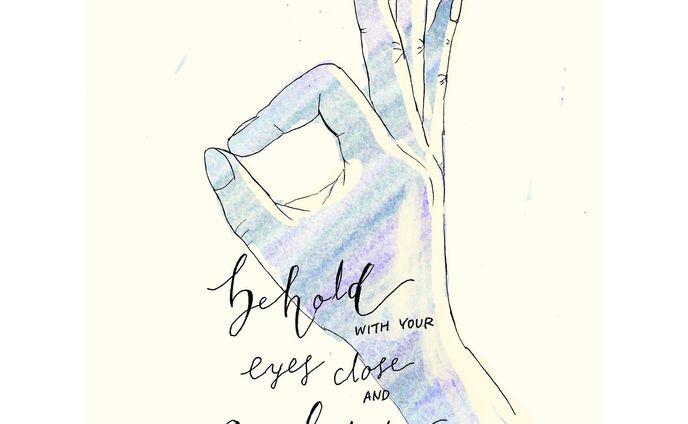 behold
WITH YOUR
eyes close
AND